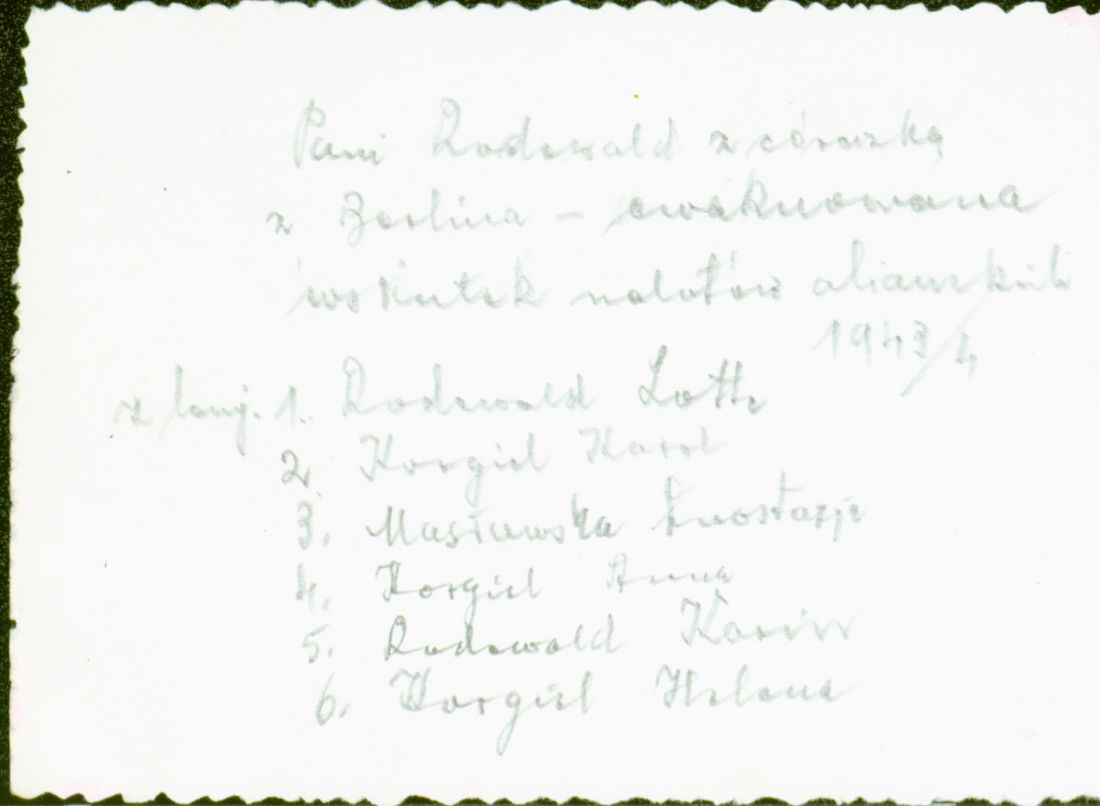 Pani Rodewald z córeczką
z Berlina – ewakuowana
wskutek nalotów alianckich
1943/4
z lewej. 1. Rodewald Lotte
2. Korgiel Karol
3. Masiewska Anastazja
4. Korgiel Anna
5. Rodewald Karin
6. Korgiel Helena